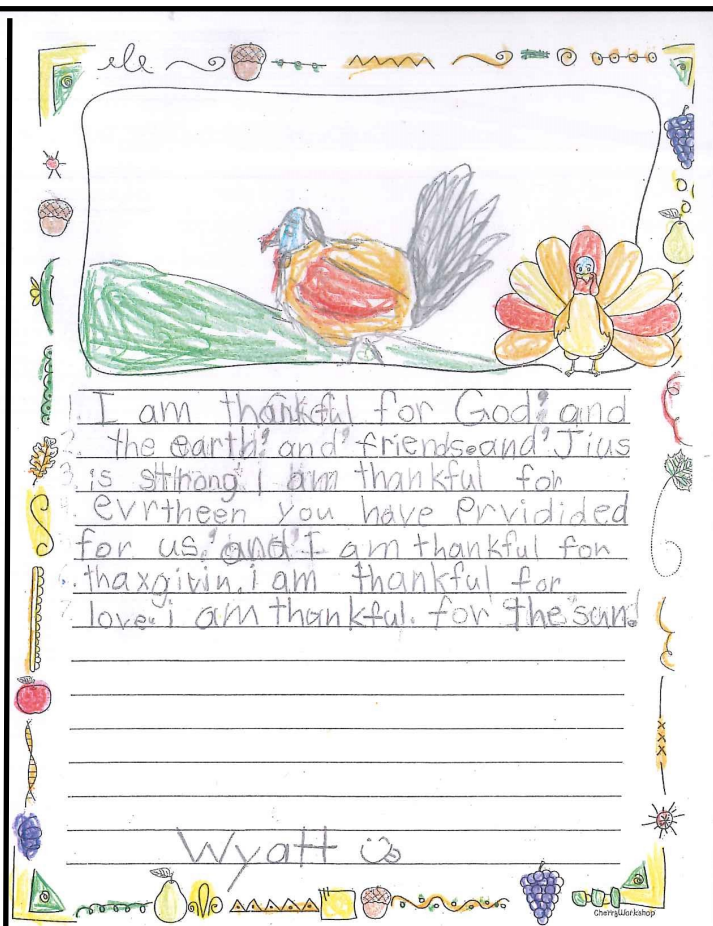 1. I am thankful for God, and
2. the earth, and friends. and Jius
3. is sthrong i am thankful for
evrtheen you have Prvidided
for us, and I am thankful for
6. thaxgivin. i am thankful for
7. love. i am thankful. for the sun!
Wyatt
CherryWorkshop